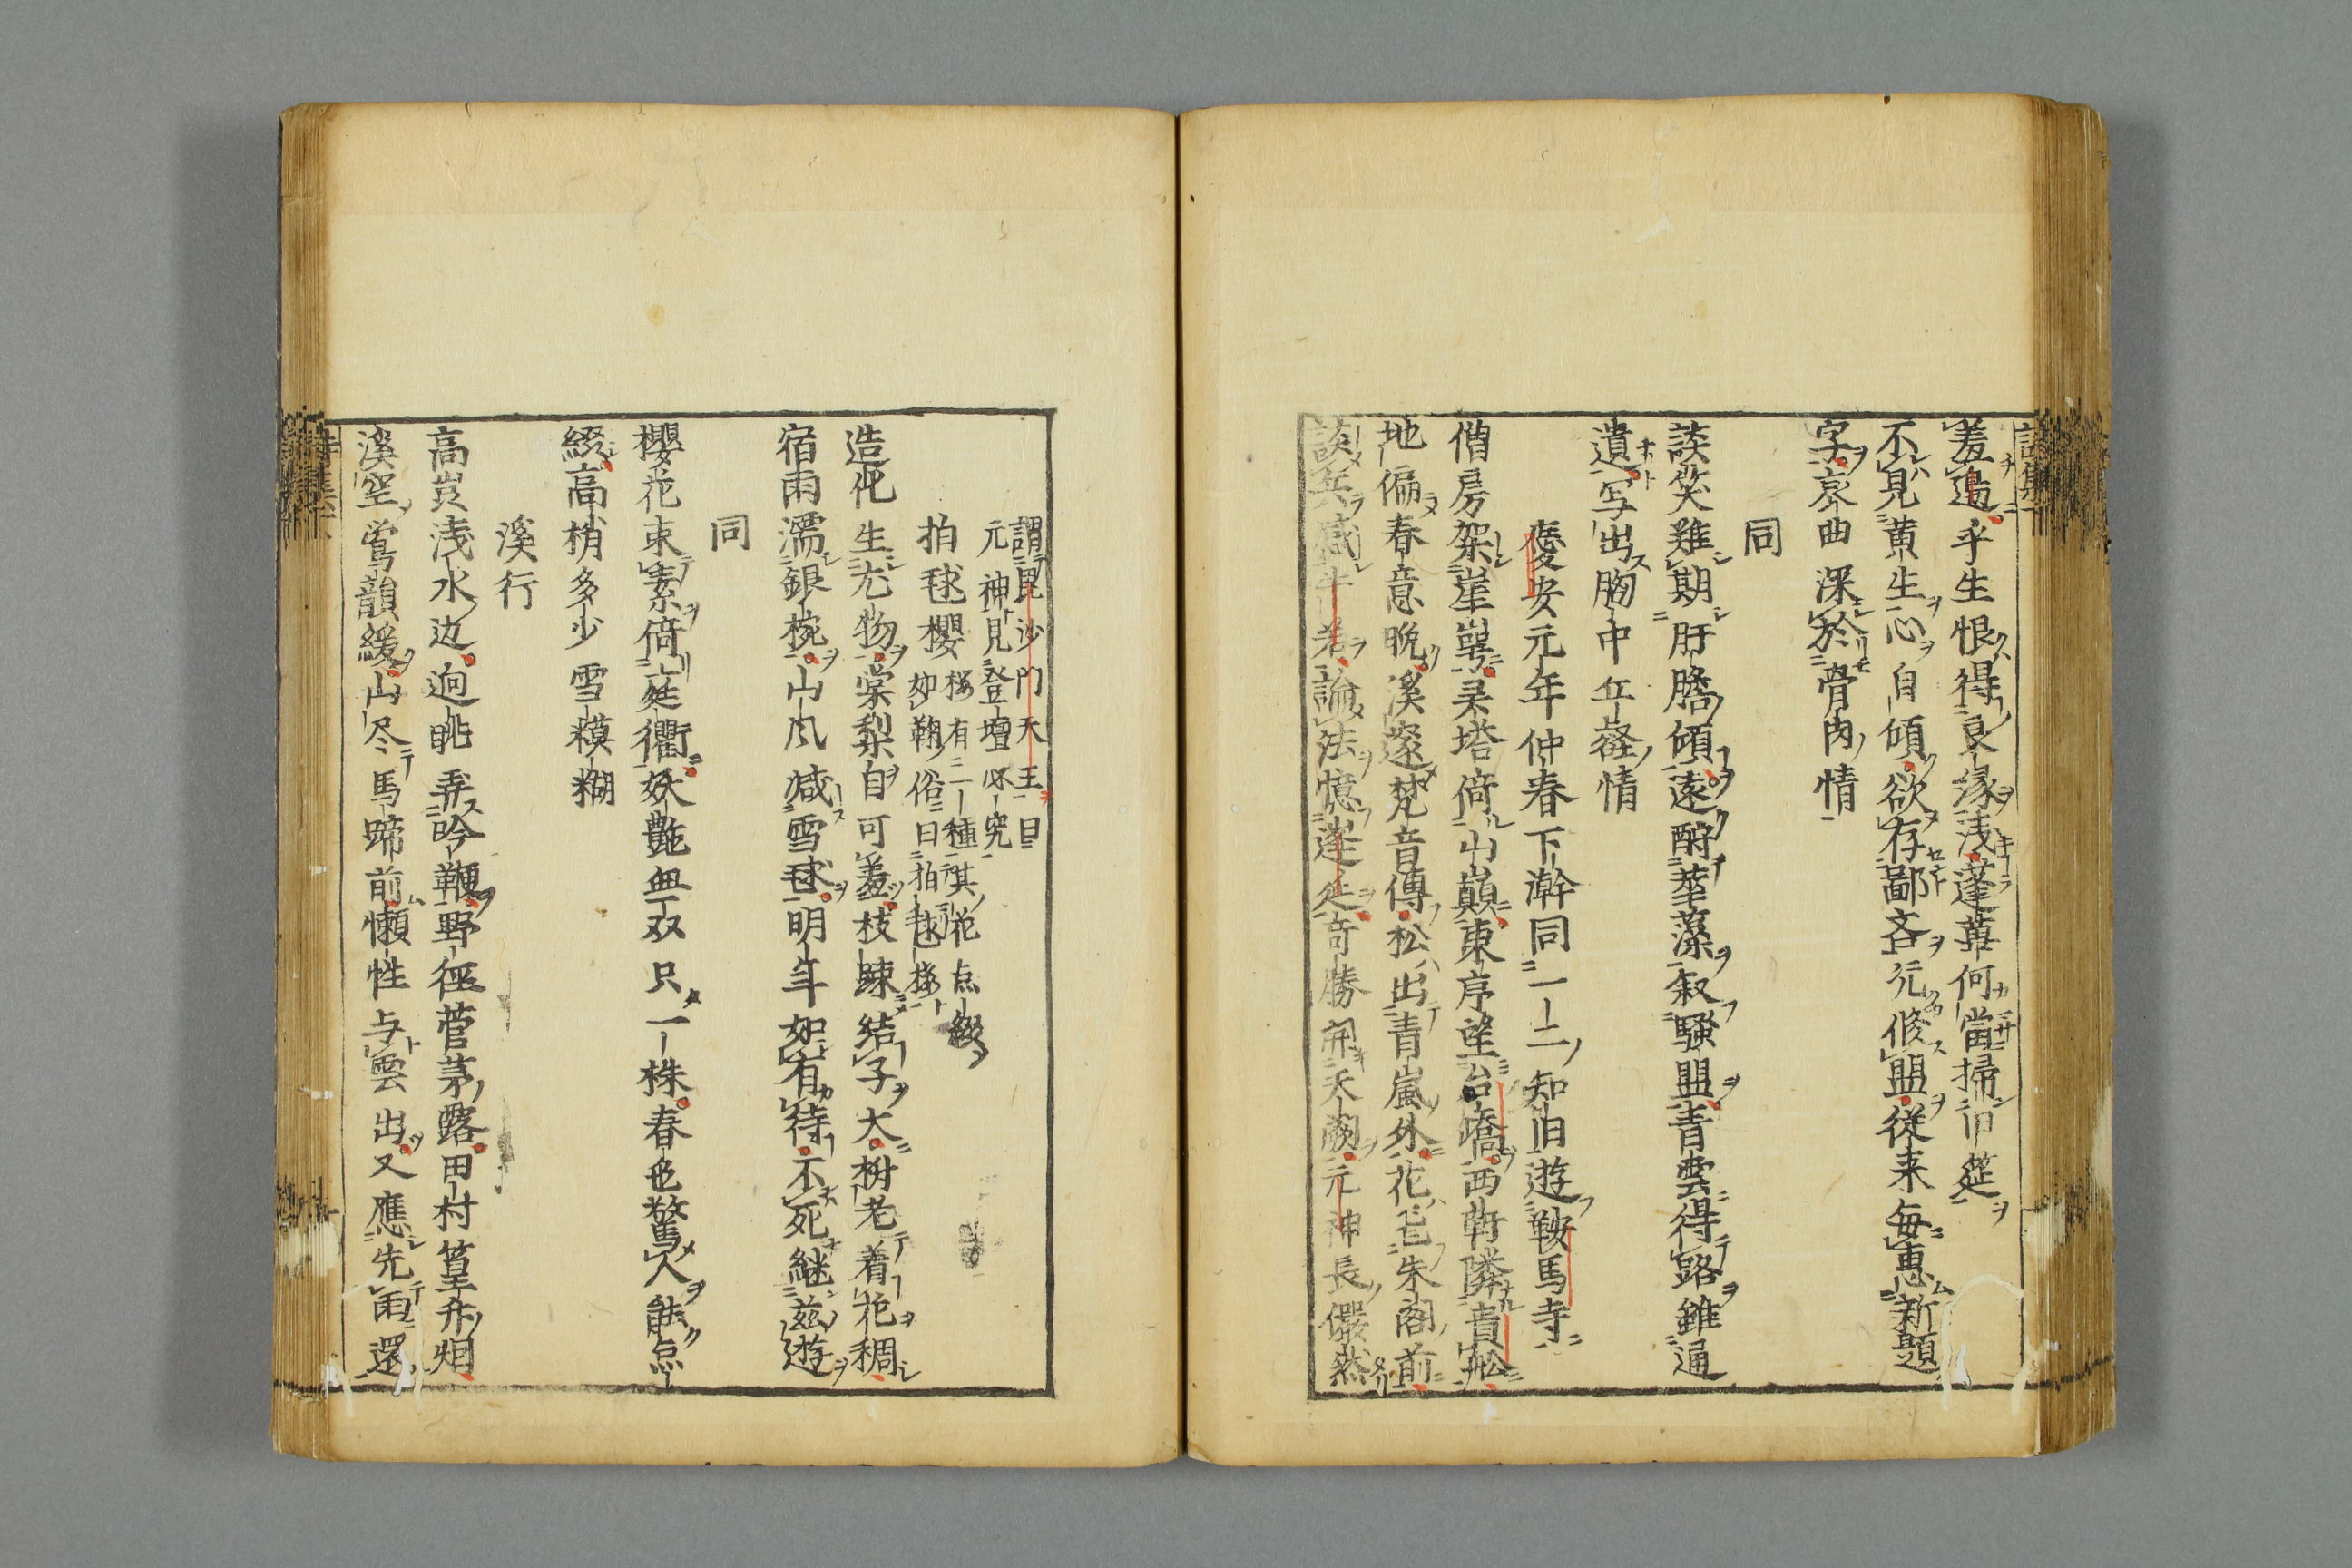 羞追乎生恨得良縁浅蓬蓽何當掃旧筵
不見黄生心自傾欲存鄙吝元脩盟従来毎恵新題
字哀曲深於骨肉情
同
談笑難期肝膽傾遠酧華藻叙騒盟青雲得路雖通
遺写出胸中丘壑情
慶安元年仲春下澣同一二知旧遊鞍馬寺
僧房架崖崿霊塔倚山巓東序望台嶠西隣貴舩
地偏春意晩溪邃梵音傳松出青嵐外花包朱閣前
談兵感牛若論法憶蓬延奇勝開天闕元神長儼然
謂毘沙門天王曰
元神見登壇必究
拍毬櫻 桜有二種其花点綴
如鞠俗曰拍毬桜
造化生尤物棠梨自可羞枝踈結子大樹老着花稠
宿雨濡銀椀山風减雪毬明年如有待不死継茲遊
同
櫻花束素倚庭衢妖艶無双只一株春色驚人能点
綴高梢多少雪糢糊
溪行
高岌浅水边迥眺弄吟鞭野徑菅茅露田村篁竹烟
溪空鴬韻緩山尽馬蹄前懶性与雲出又應先雨還